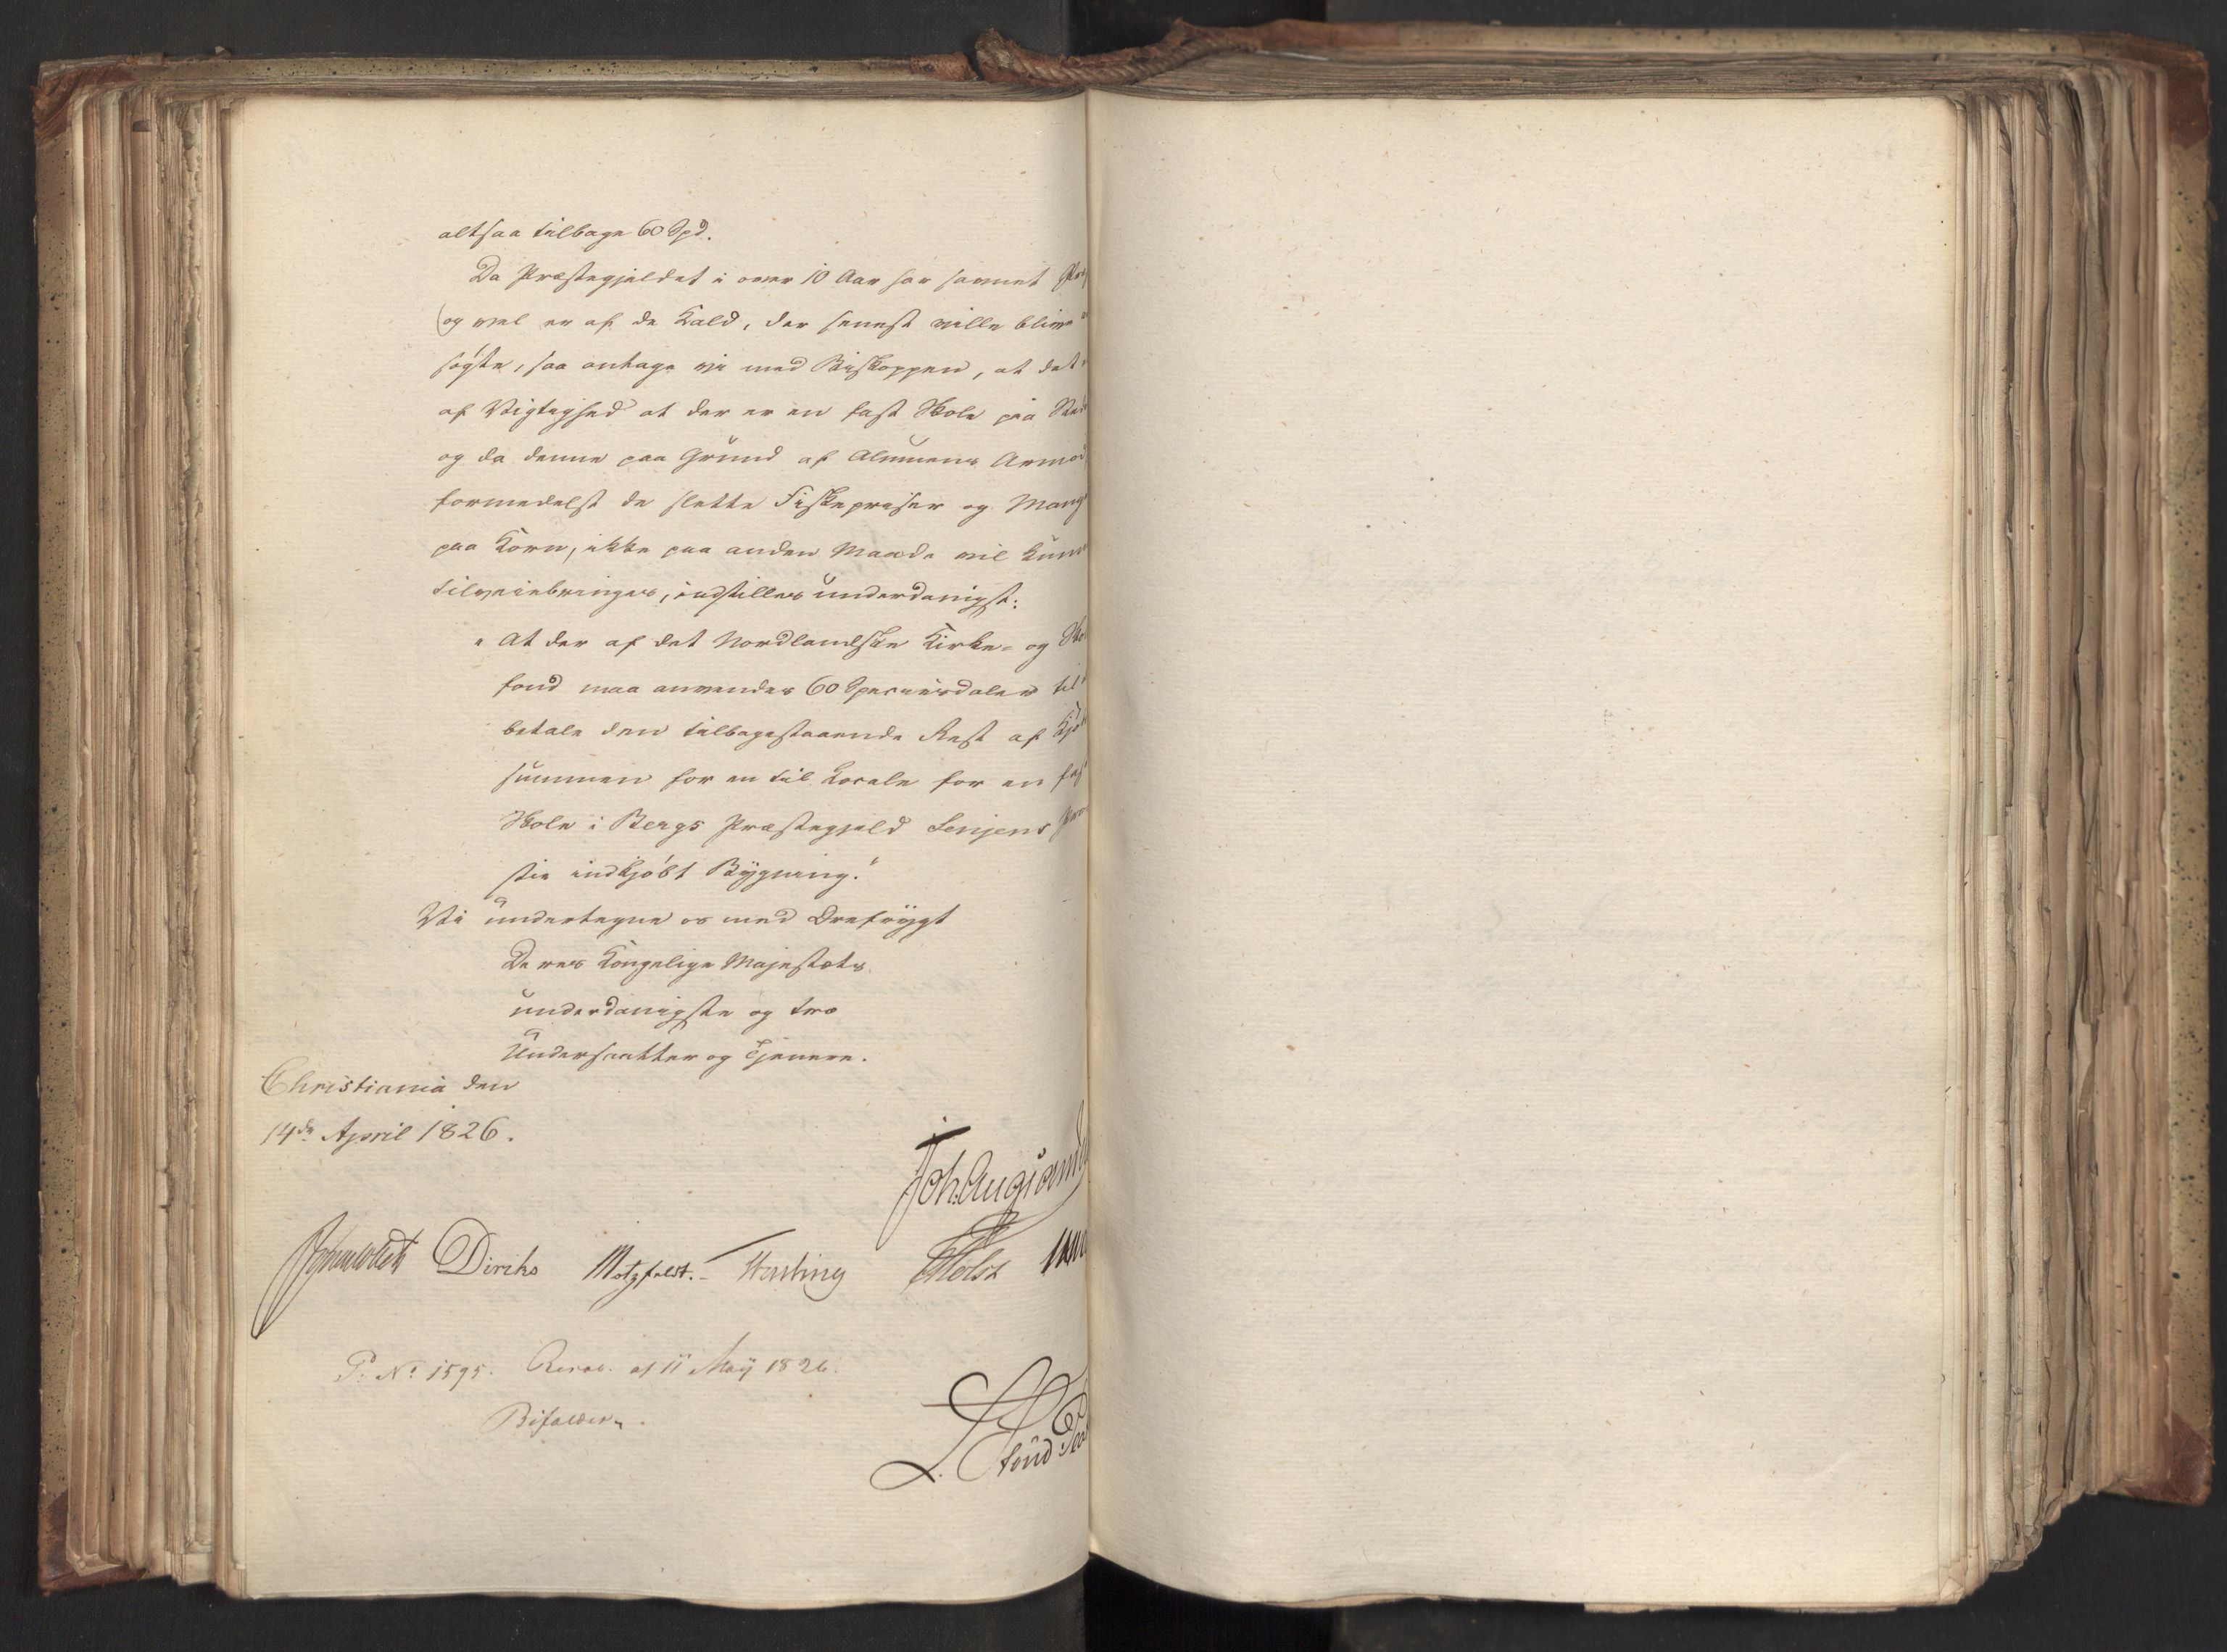 altsaa tilbage 60 Spd.
Da Præstegjeldet i over 10 Aar har savnet
og vel er af de Kald, der senest ville blive
søgte, saa antage vi med Biskoppen, at det
af Vigtighed at der er en fast Skole paa
og da denne paa Grund af Almuens
formedelst de slette Fiskepriser og
paa Korn, ikke paa anden Maade vil
tilveiebringes, indstilles underdanigst:
"At der af det Nordlandske Kirke- og
fond maa anvendes 60 Speciesdaler til
betale den tilbagestaaende Rest af
summen for en til Locale for en
Skole i Bergs Præstegjeld Senjens
stie indkjøbt Bygning."
Vi undertegne os med Ærefrygt
Deres Kongelige Majestæts
underdanigste og troe
Undersaatter og Tjenere.
Christiania den
14de April 1826.
Joh. Aug. Sand
Diriks Motzfeldt. Hersleb Holst
P. No 1595. Resol. af 11 Maij 1826.
Bifaldes.